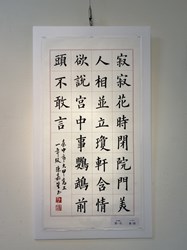 寂寂花時閉院門美
人相並立瓊軒含情
欲說宮中事鸚鵡前
頭不敢言